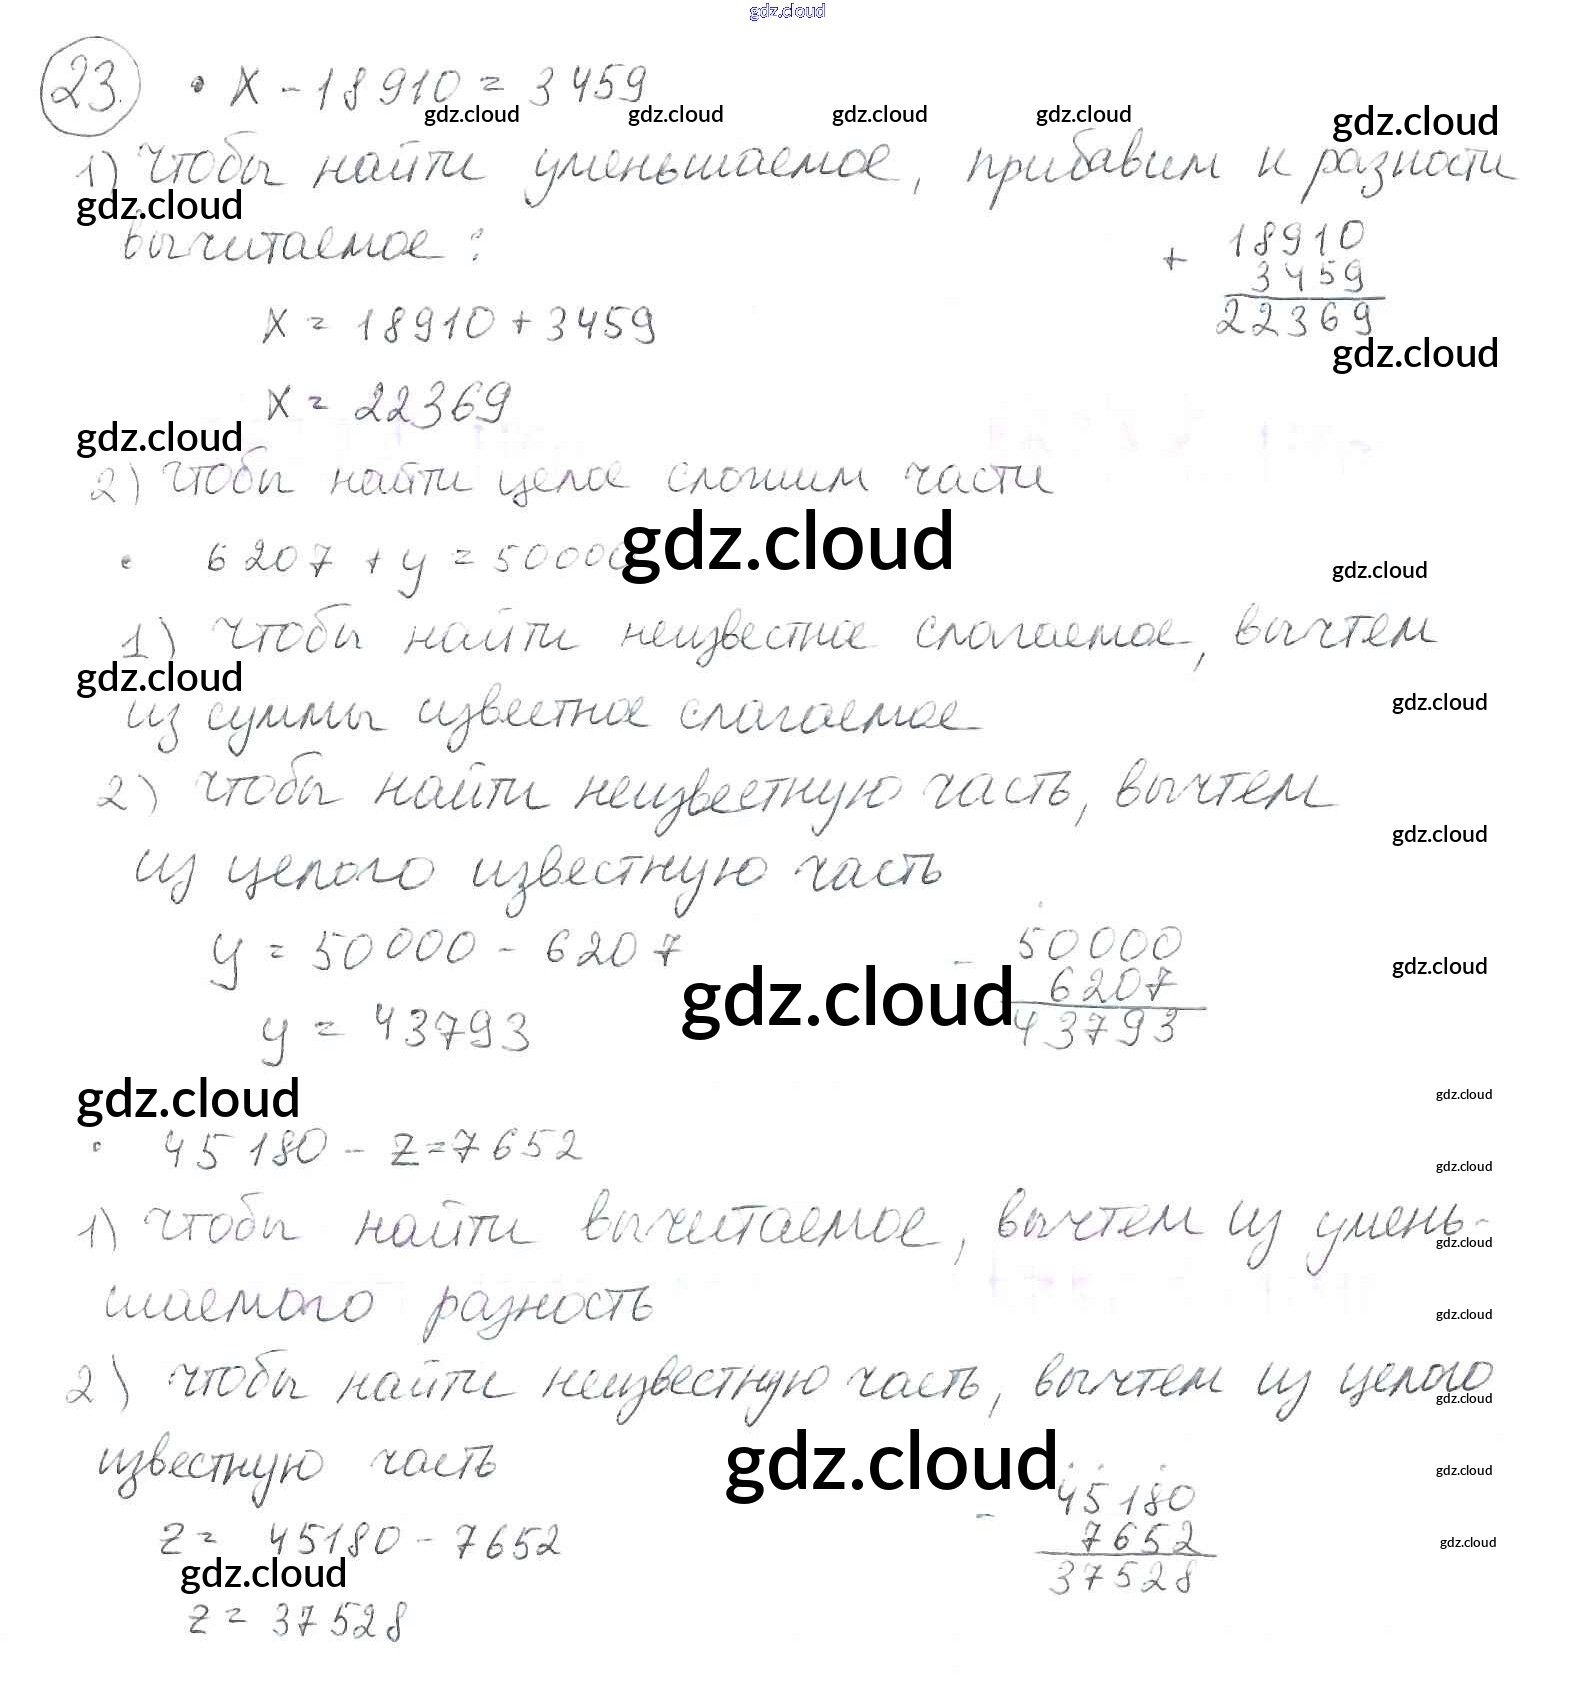 gdz.cloud
23. • x - 18910 = 3459
gdz.cloud gdz.cloud gdz.cloud gdz.cloud gdz.cloud
1) Чтобы найти уменьшаемое, прибавим к разности
gdz.cloud
вычитаемое:
+ 18910
3459
22369
x = 18910 + 3459
gdz.cloud
x = 22369
gdz.cloud
2) Чтобы найти целое сложим части
• 6207 + y = 50000
gdz.cloud
gdz.cloud
1) Чтобы найти неизвестное слагаемое, вычтем
gdz.cloud
из суммы известное слагаемое
gdz.cloud
2) Чтобы найти неизвестную часть, вычтем
gdz.cloud
из целого известную часть
y = 50000 - 6207
- 50000
6207
43793
gdz.cloud
gdz.cloud
y = 43793
gdz.cloud
gdz.cloud
• 45180 - z = 7652
gdz.cloud
1) Чтобы найти вычитаемое, вычтем из умень-
gdz.cloud
шаемого разность
gdz.cloud
2) Чтобы найти неизвестную часть, вычтем из целого
gdz.cloud
известную часть
gdz.cloud
gdz.cloud
- 45180
7652
37528
z = 45180 - 7652
gdz.cloud
gdz.cloud
z = 37528